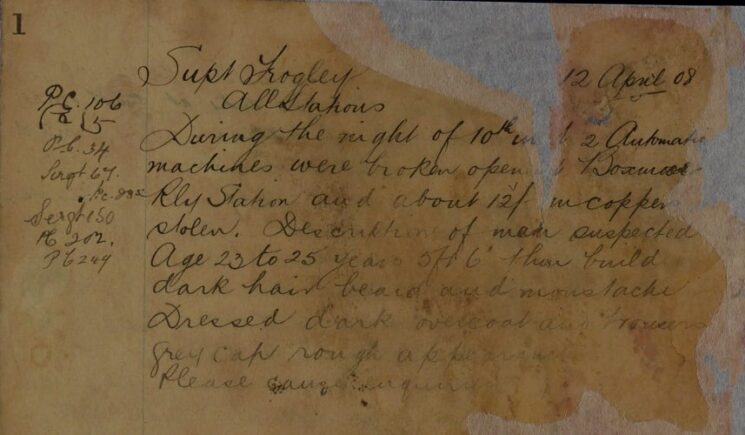 1
Supt Frogley 12 April 08
All Stations
P.C. 106
P.C. 34
Sergt 67.
P.C. 235
Sergt 150
PC 202.
PC 249
During the night of 10th 2 Automatic
machines were broken open Boxmoor
Rly Station and about 12/ in coppers
stolen. Description of man suspected
Age 23 to 25 years 5ft 6 thin build
dark hair beard and moustache
Dressed dark overcoat and trousers
grey cap rough appearance
Please cause inquiries